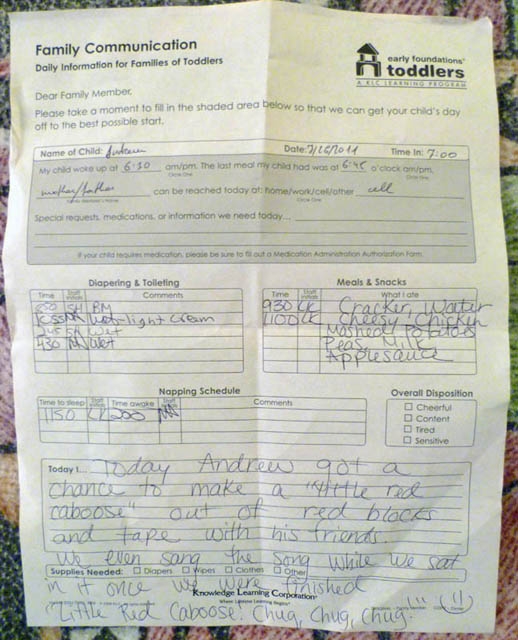 Family Communication
Daily Information for Families of Toddlers
early foundations'
toddlers
A KLC LEARNING PROGRAM
Dear Family Member,
Please take a moment to fill in the shaded area below so that we can get your child's day
off to the best possible start.
Name of Child: Andrew Date: 7/26/2011 Time In: 7:00
My child woke up at 6:30 am/pm. The last meal my child had was at 6:45 o'clock am/pm.
Circle One Circle One
mother/father can be reached today at: home/work/cell/other cell
Family Member's Name Circle One
Special requests, medications, or information we need today...
If your child requires medication, please be sure to fill out a Medication Administration Authorization Form.
Diapering & Toileting
Time Staff Initials Comments
850 SH BM
1055 Wet-light cream
245 SH Wet
430 Wet
Meals & Snacks
Time Staff Initials What I ate
930 CK Cracker, Water
1100 CK Cheesy Chicken
Mashed Potatoes
Peas, Milk
Applesauce
Napping Schedule
Time to sleep Staff Initials Time awake Staff Initials Comments
1150 CK 200
Overall Disposition
Cheerful
Content
Tired
Sensitive
Today I... Today Andrew got a
chance to make a "little red
caboose" out of red blocks
and tape with his friends.
We even sang the song while we sat
Supplies Needed: Diapers Wipes Clothes Other
in it once we were finished
Knowledge Learning Corporation
"Little Red Caboose: Chug, Chug, Chug"